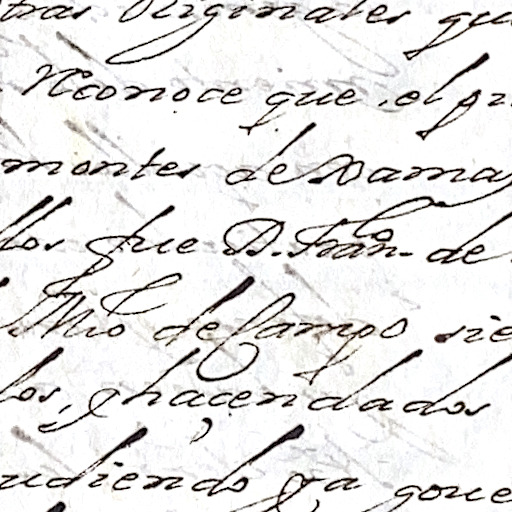 tras Originales que
Reconoce que, el pr
montes de Bamay
llos que D. Franco. de
Mro de Campo sie
los, y hacendados
udiendo ya gove